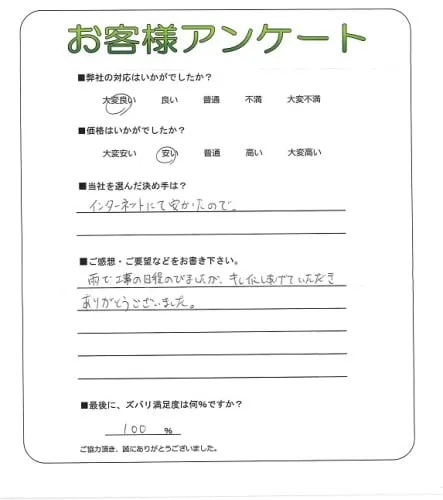 お客様アンケート
■弊社の対応はいかがでしたか？
大変良い 良い 普通 不満 大変不満
■価格はいかがでしたか？
大変安い 安い 普通 高い 大変高い
■当社を選んだ決め手は？
インターネットにて安かたので。
■ご感想・ご要望などをお書き下さい。
雨で工事の日程のびましたが、キレイに仕上げていただき
ありがとうございました。
■最後に、ズバリ満足度は何％ですか？
100 ％
ご協力頂き、誠にありがとうございました。